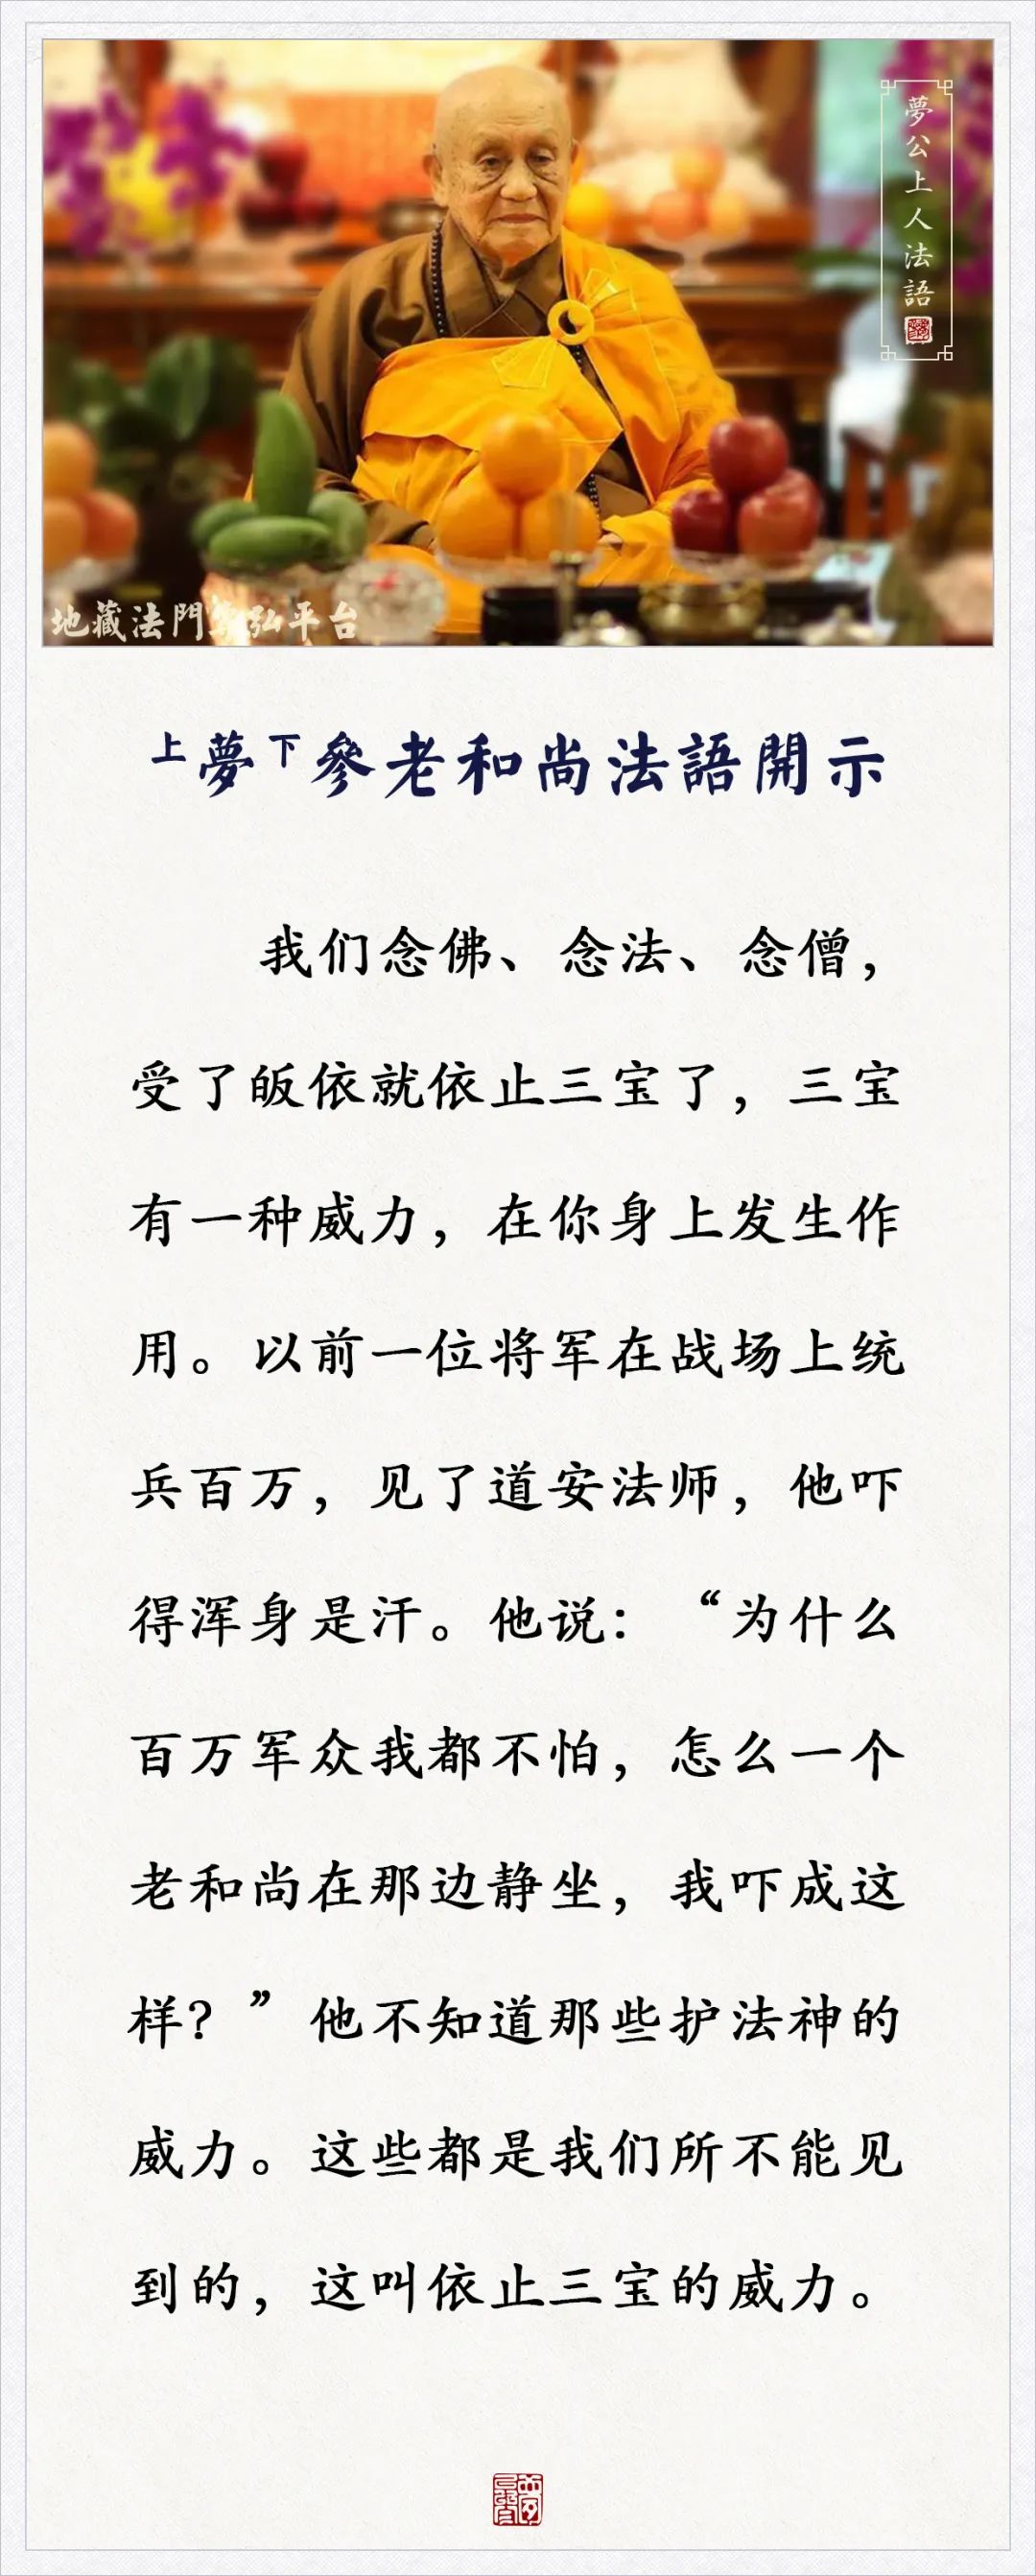 夢公上人法語
地藏法門弘平台
上夢下參老和尚法語開示
我们念佛、念法、念僧，
受了皈依就依止三宝了，三宝
有一种威力，在你身上发生作
用。以前一位将军在战场上统
兵百万，见了道安法师，他吓
得浑身是汗。他说：“为什么
百万军众我都不怕，怎么一个
老和尚在那边静坐，我吓成这
样？”他不知道那些护法神的
威力。这些都是我们所不能见
到的，这叫依止三宝的威力。